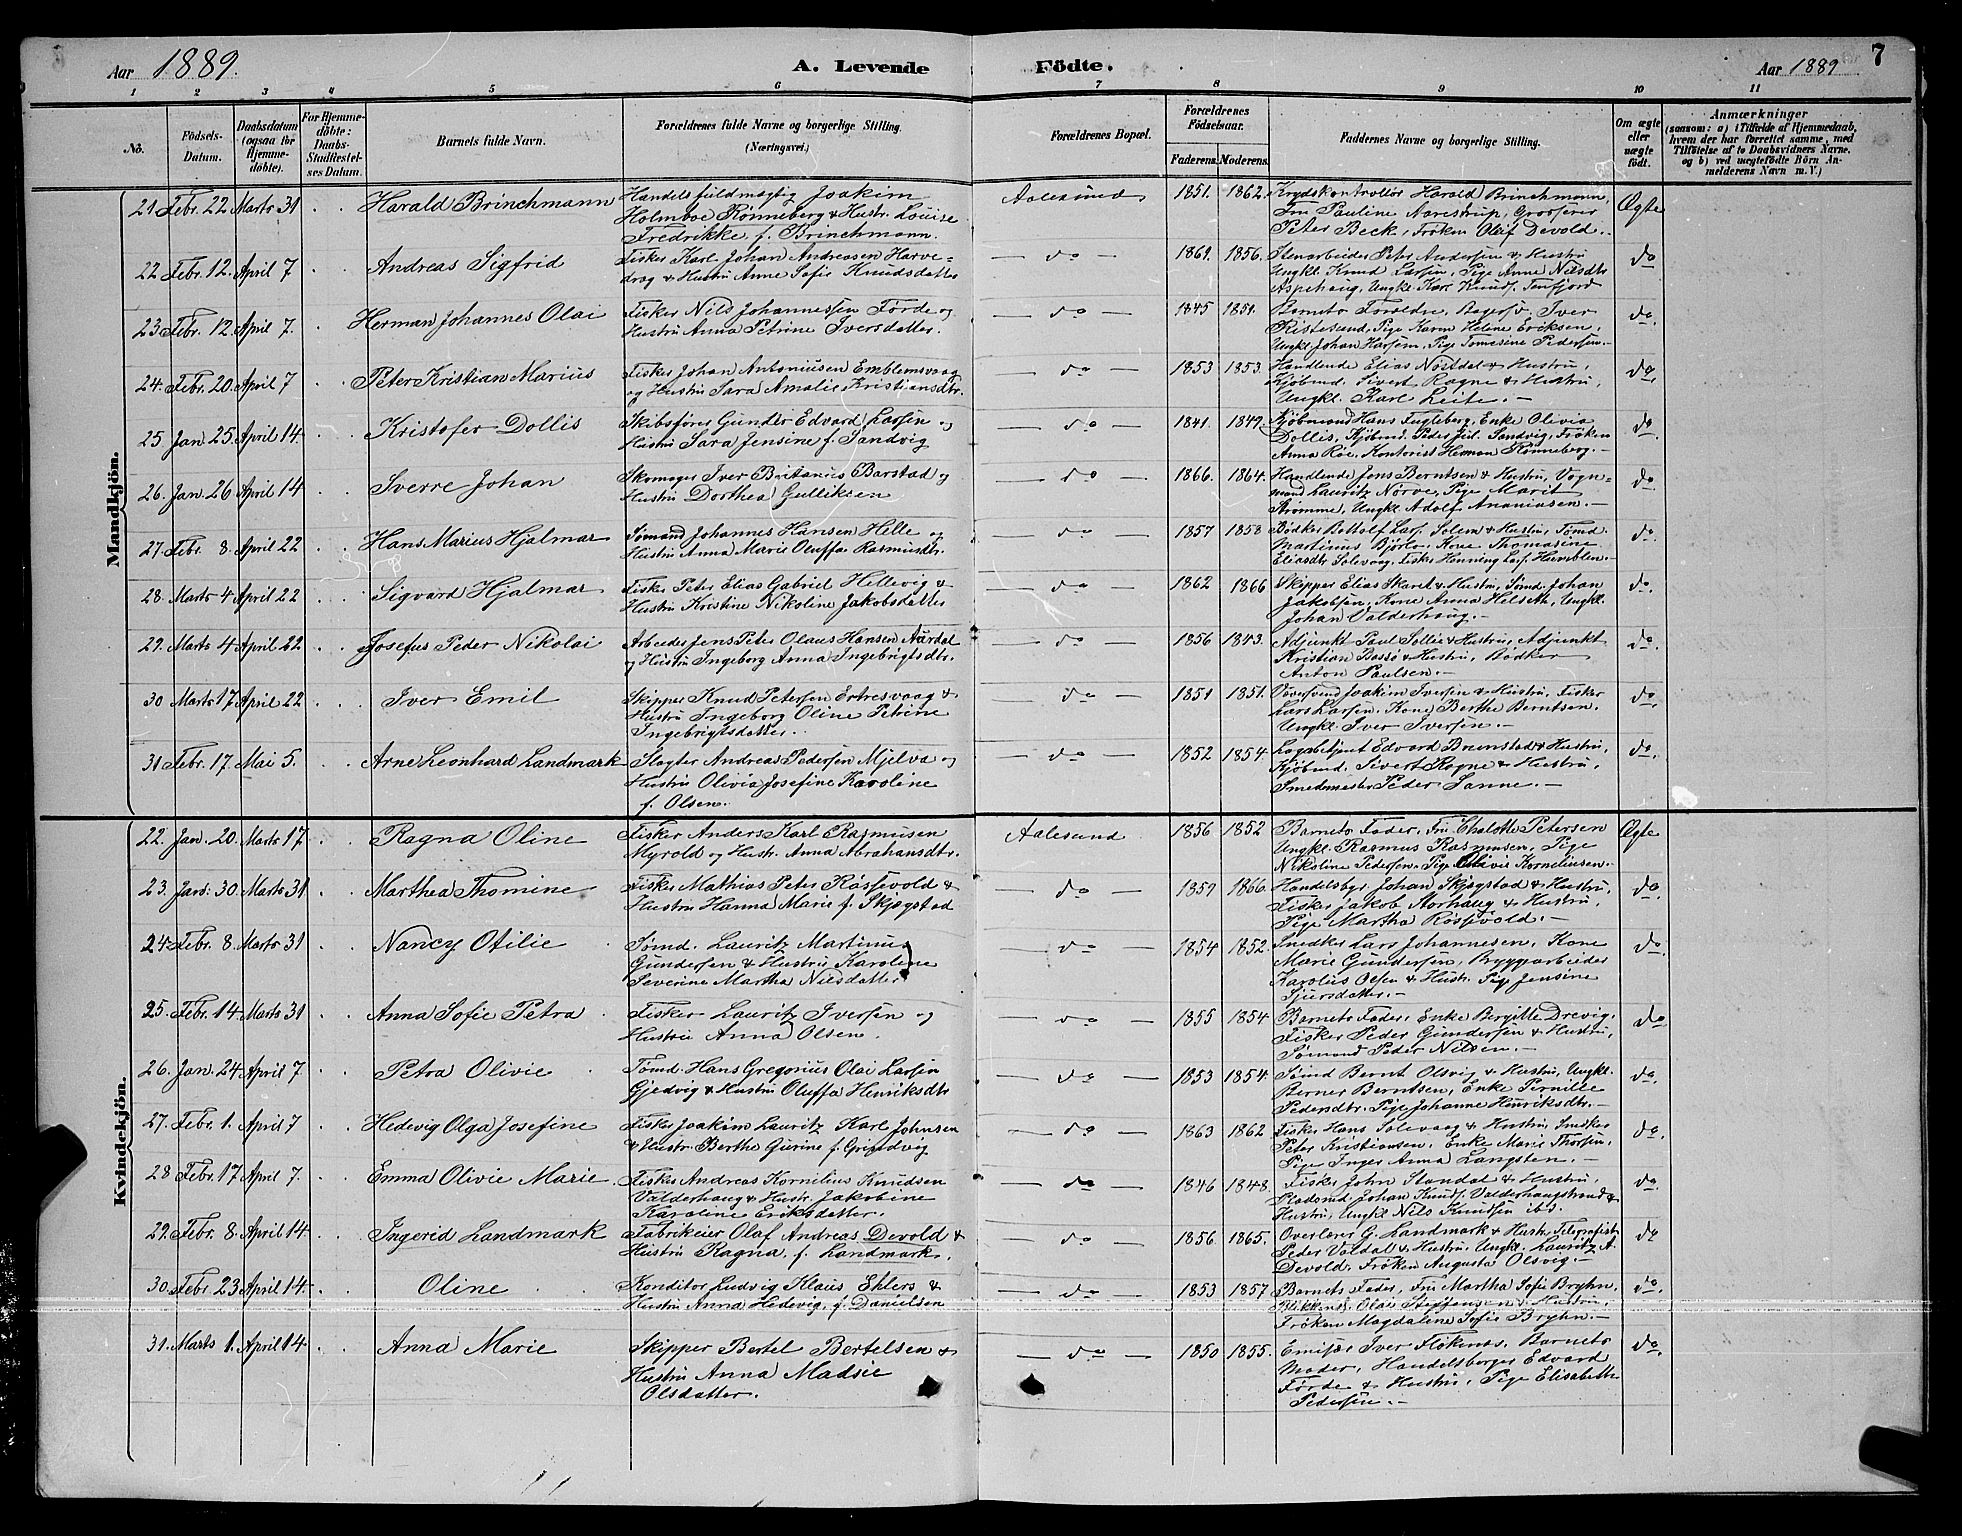 Aar 1889. A. Levende Födte. Aar 1889 7
1 2 3 4 5 6 7 8 9 10 11
No. Födsels-Datum. Daabsdatum (ogsaa for Hjemmedöbte). For Hjemmedöbte: Daabs-Stadfæstelses Datum. Barnets fulde Navn. Forældrenes fulde Navne og borgerlige Stilling. (Næringsvei.) Forældrenes Bopæl. Forældrenes Födselsaar. Faderens. Moderens. Faddernes Navne og borgerlige Stilling. Om ægte eller uægte födt. Anmærkninger (saasom: a) i Tilfælde af Hjemmedaab, hvem der har forrettet samme, med Tilföielse af to Daabsvidners Navne, og b) ved uægtefödte Börn Anmelderens Navn m. V.)
Mandkjön.
21 Febr. 22 Marts 31 Harald Brinchmann Handelsfuldmægtig Joakim Aalesund 1851. 1862. Krydskontrollör Harald Brinchmann, Ægte
Holmboe Rønneberg & Hustr. Louise Fru Pauline Narestrup, Grosserer
Fredrikke f. Brinchmann. Peter Beck, Frøken Olaf Devold.
22 Febr. 12. April 7 Andreas Sigfrid Fisker Karl Johan Andreasen Harve- do 1861. 1856. Stenarbeider Peter Andersen & Hustru do
drag & Hustru Anne Sofie Knudsdatter Ungkl. Knud Larsen, Pige Anne Nilsdtr
Aspehaug, Ungkl. Karl Knuds. Tenfjord
23 Febr. 12 April 7. Herman Johannes Olai Fisker Nils Johannessen Førde og do 1845 1851. Barnets Forældre, Bagersv. Iver do.
Hustru Anna Petrine Iversdatter. Ristesund, Pige Karen Helene Eriksen,
Ungkl. Johan Hansen, Pige Tomesine Pedersen.
24. Febr. 20. April 7 Peter Kristian Marius Fisker Johan Antoniusen Emblemsvaag do 1853 1853. Handlende Elias Nöstdal & Hustru, do.
og Hustru Sara Amalie Kristiansdtr. Kjøbmd. Sivert Ragne & Hustru,
Ungkl. Karl Leite.
25. Jan. 25. April 14 Kristofer Dollis Skibsfører Gunder Edvard Larsen og do 1841. 1849. Kjøbmand Hans Fugleberg, Enke Olivia do
Hustru Sara Jensine f. Sandvig Dollis, Kjøbmd. Peder Jul. Sandvig, Frøken
Anna Röe, Kontorist Herman Rønneberg.
26. Jan. 26 April 14 Sverre Johan Skomager Iver Britanius Barstad og do 1866. 1864. Handlende Jens Berntsen & Hustru, Vogn- do
Hustru Dorthea Gulliksen mand Lauritz Nörve, Pige Marit
Strømme, Ungkl. Adolf Ananiasen.
27. Febr. 8 April 22 Hans Marius Hjalmar Sømand Johannes Hansen Helle og do 1857 1858 Bødker Bottolf Lars. Solem & Hustru, Tømd. do
Hustru Anna Marie Oluffa Rasmusdtr. Martinus Bjørlo, Kone Thomasine
Eliasdtr Solevaag, Fisker Henning Lars. Humblen.
28. Marts 4 April 22 Sigvard Hjalmar Fisker Peter Elias Gabriel Hellevig & do 1862 1866 Skipper Elias Skaret & Hustru, Sömd. Johan do.
Hustru Kristine Nikoline Jakobsdatter Jakobsen, Kone Anna Helseth, Ungkl.
Johan Valderhaug.
29. Marts 4 April 22 Josefus Peder Nikolai Arbeider Jens Peter Olaus Hansen Aärdal do 1856 1843. Adjunkt Paul Sollie & Hustru, Adjunkt do.
og Hustru Ingeborg Anna Ingebrigtsdtr. Kristian Bassö & Hustru, Bødker
Anton Paulsen.
30 Marts 17 April 22 Iver Emil Skipper Knud Petersen Ertresvaag & do 1851 1851. Joakim Iversen & Hustru, Fisker do.
Hustru Ingeborg Oline Petrine Lars Larsen, Kone Berthe Berntsen,
Ingebrigtsdatter. Ungkl. Iver Iversen.
31 Febr. 17. Mai 5. Arne Leonhard Landmark Slagter Andreas Pedersen Mjelva og do 1852 1854. Edvard Brunstad & Hustru, do.
Hustru Olivia Josefine Karoline Kjøbmd. Sivert Ragne & Hustru,
f. Olsen. Smedemester Peder Sanne.
Kvindekjön.
22. Jan. 20. Marts 17 Ragna Oline Fisker Anders Karl Rasmusen Aalesund 1856 1852 Barnets Fader, Fru Charlotte Petersen Ægte
Myrold og Hustr. Anna Abrahamsdtr. Ungkl. Rasmus Rasmusen, Pige
Nikoline Pedersen, Pige Olivie Korneliusen.
23. Jan. 30. Marts 31 Marthea Thomine Fisker Mathias Peter Røssevold & do 1859 1866. Handelsbgr. Johan Skjegstad & Hustru, do
Hustru Hanna Marie f. Skjegstad Fisker Jakob Storhaug & Hustru,
Pige Martha Røssevold.
24 Febr. 8. Marts 31 Nancy Otilie Sømd. Lauritz Martinus do 1854 1852. Snedker Lars Johannesen, Kone do
Gundersen & Hustru Karoline Marie Gundersen, Bryggearbeider
Severine Martha Nilsdatter Karolius Olsen & Hustr. Pige Jensine
Sjursdatter.
25. Febr. 14. Marts 31 Anna Sofie Petra Fisker Lauritz Iversen og do 1855 1854 Barnets Fader, Enke Bergitte Drevig, do
Hustru Anna Olsen. Fisker Peder Gundersen & Hustru,
Sømand Peder Nilsen.
26. Jan. 24. April 7 Petra Olivie Tømd. Hans Gregorius Olai Larsen do 1853 1854. Sømd Bernt Olsvig & Hustru, Ungkl. do.
Gjedvig & Hustru Oluffa Henriksdtr Berner Berntsen, Enke Pernille
Pedersdtr. Pige Johanne Henriksdtr.
27. Febr. 1. April 7 Hedevig Olga Josefine Fisker Joakim Lauritz Karl Johnsen do 1863 1862 Fisker Hans Solevaag & Hustru, Snedker do.
& Hustr. Berthe Gurine f. Grindvig Peter Kristiansen, Enke Marie Thorsen,
Pige Inger Anna Langsten.
28 Febr. 17 April 7. Emma Olivie Marie Fisker Andreas Kornelius Knudsen do 1846 1848. Fisker John Standal & Hustru, do.
Valderhaug & Hustr. Jakobine Johan Knuds. Valderhaugstrand &
Karoline Eriksdatter. Hustru, Ungkl. Nils Knudsen ibd.
29. Febr. 8. April 14 Ingerid Landmark Fabrikeier Olaf Andreas Devold & do 1856. 1865. Overlærer G. Landmark & Hustr. Telegrafist do
Hustru Ragna f. Landmark. Peder Valdal & Hustru, Ungkl. Lauritz A.
Devold, Frøken Augusta Olsvig.
30. Febr. 23 April 14. Oline Konditor Ludvig Klaus Ehlers & do 1853 1857 Barnets Fader, Fru Martha Sofie Bryhn, do
Hustru Anna Hedevig f. Danielsen Blikkensl. Olai Steffensen & Hustru,
Frøken Magdalene Sofie Bryhn.
31. Marts 1. April 14. Anna Marie Skipper Bertel Bertelsen & do 1850 1855. Emisær Iver Flökenes, Barnets do.
Hustru Anna Madsie Moder, Handelsborger Edvard
Olsdatter. Førde & Hustru, Pige Elisabeth
Pedersen.